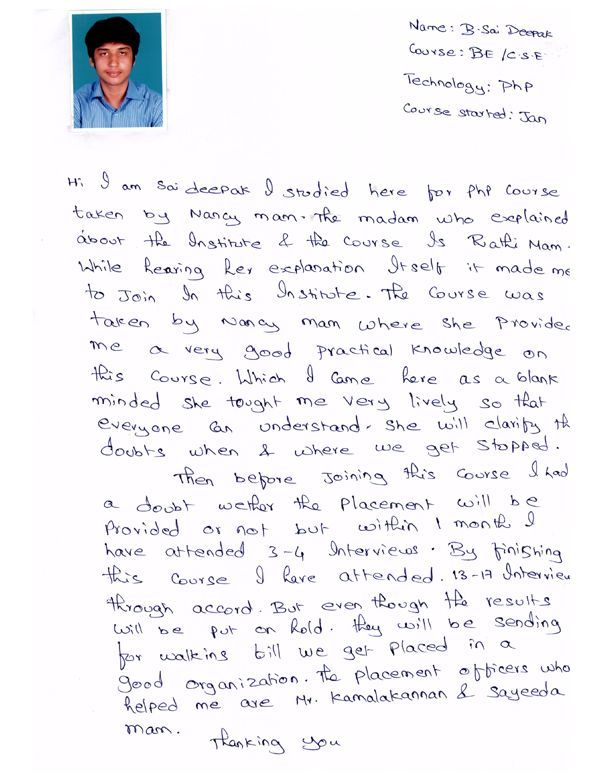 Name: B.Sai Deepak
Course: BE /C.S.E
Technology: PhP
Course started: Jan
Hi I am Sai deepak I studied here for PhP Course
taken by Nancy mam. The madam who explained
about the Institute & the Course Is Rathi Mam.
While hearing her explanation Itself it made me
to Join In this Institute. The Course was
taken by Nancy mam where she Provided
me a very good Practical Knowledge on
this Course. Which I Came here as a blank
minded she tought me very lively so that
everyone Can understand. She will clarify th
doubts when & where we get Stopped.
Then before Joining this Course I had
a doubt wether the Placement will be
Provided or not but within 1 month I
have attended 3-4 Interviews. By finishing
this Course I have attended. 13-17 Interview
through accord. But even though the results
will be put on hold. they will be sending
for walkins till we get Placed in a
good organization. The Placement officers who
helped me are Mr. Kamalakannan & Sayeeda
mam.
Thanking you